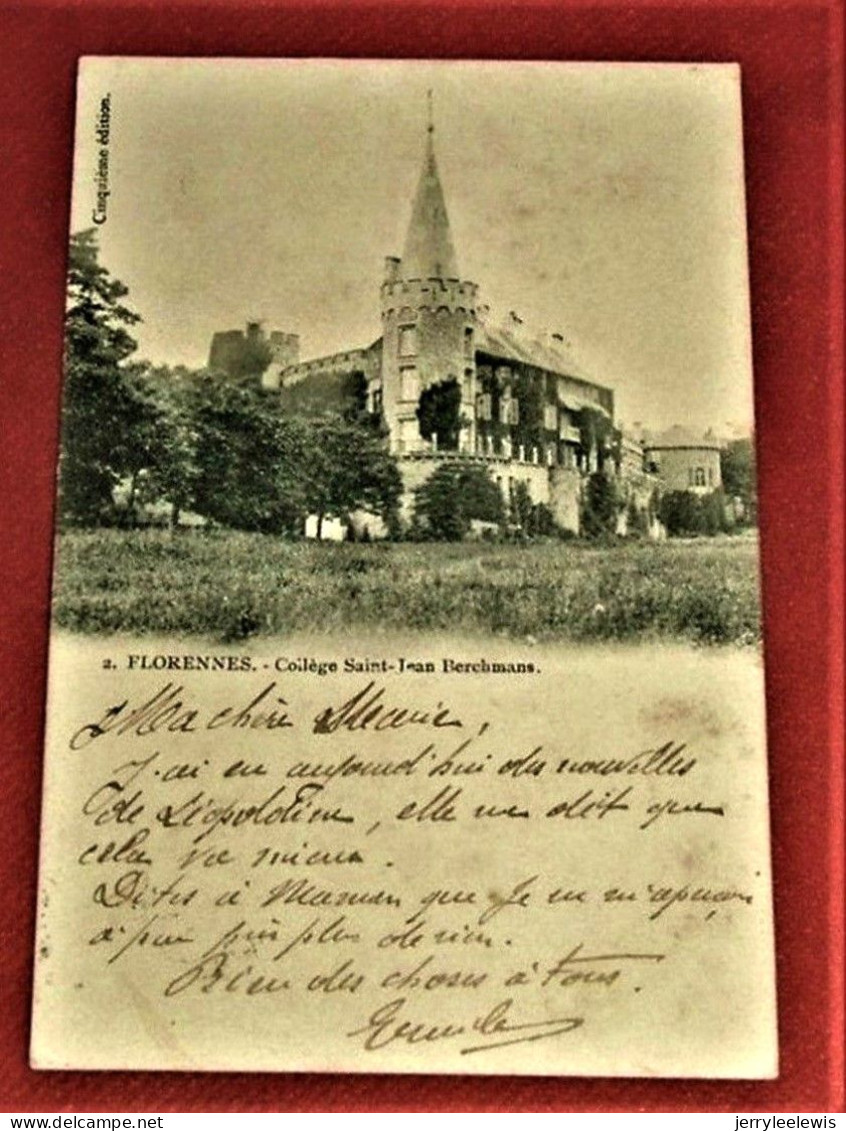 Cinquième édition.
2. FLORENNES. - Collège Saint-Jean Berchmans.
Ma chère Marie,
J'ai eu aujourd'hui des nouvelles
de Léopoldine, elle me dit que
cela va mieux.
Dites à Maman que je ne m'aperçois
à peu près plus de rien.
Bien des choses à tous.
delcampe.net
jerryleelewis